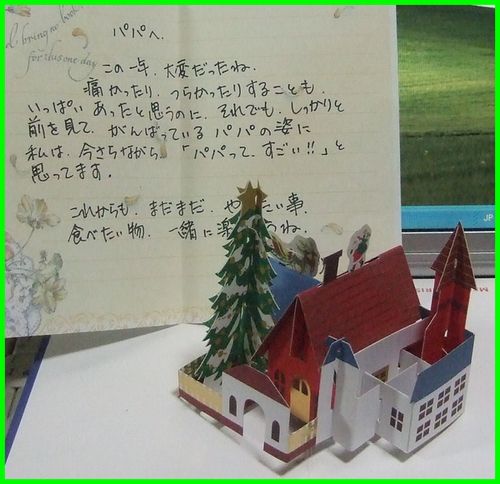 bring
for this one day
パパへ.
この一年、大変だったね.
痛かったり、つらかったりすることも、
いっぱいあったと思うのに、それでも、しっかりと
前を見て、がんばっているパパの姿に
私は、今さらながら、「パパって、すごい!!」と
思ってます.
これからも、まだまだ、や たい事、
食べたい物、一緒に楽 うね.
JP